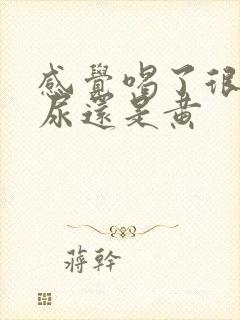 感覺喝了很
尿還是黃
蔣幹